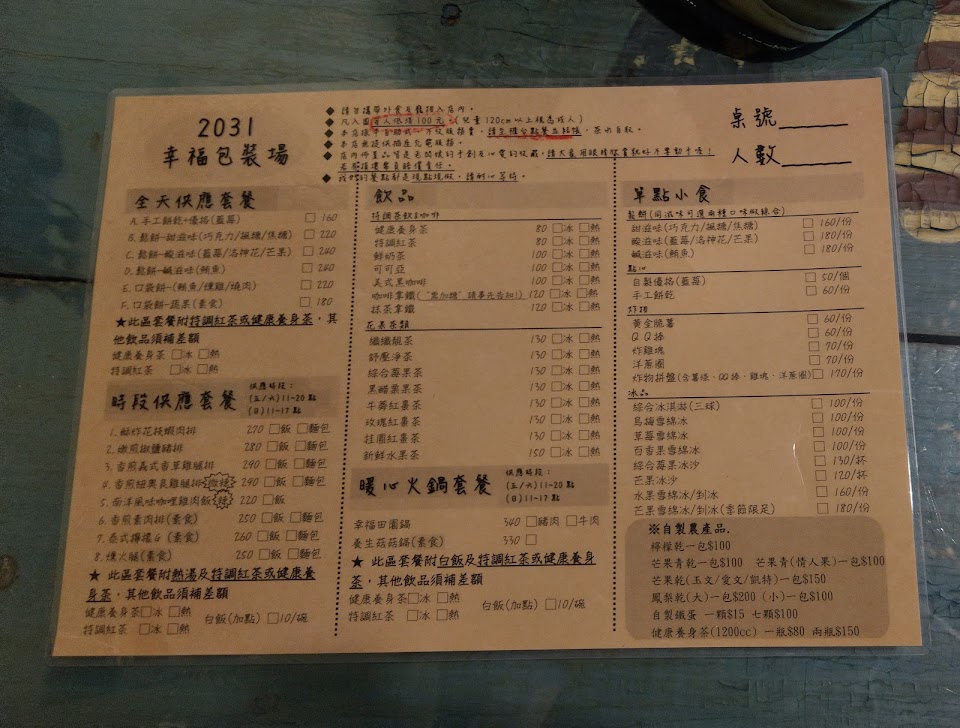 2031
幸福包裝場
◆ 請勿攜帶外食及寵物入店內。
◆ 凡入園每人低消100元。(兒童120cm以上視為成人)
◆ 本店採半自助式,不收服務費,請至櫃台點餐並結帳,茶水自取。
◆ 本店無提供插座充電服務。
桌號
人數
全天供應套餐
A.手工餅乾+優格(藍莓) □ 160
B.鬆餅-甜滋味(巧克力/楓糖/焦糖) □ 220
C.鬆餅-酸滋味(藍莓/洛神花/芒果) □ 240
D.鬆餅-鹹滋味(鮪魚) □ 240
E.口袋餅-(鮪魚/燻雞/燒肉) □ 220
F.口袋餅-蔬果(素食) □ 180
★此區套餐附特調紅茶或健康養身茶,其
他飲品須補差額
健康養身茶 □冰 □熱
特調紅茶 □冰 □熱
時段供應套餐
供應時段:
(五/六)11~20點
(日)11~17點
1.酥炸花枝蝦肉排 270 □飯 □麵包
2.嫩煎椒鹽豬排 280 □飯 □麵包
3.香煎義式香草雞腿排 290 □飯 □麵包
4.香煎紐奧良雞腿排(微辣) 290 □飯 □麵包
5.南洋風味咖哩雞肉飯(辣) 220 □飯
6.香煎素肉排(素食) 250 □飯 □麵包
7.泰式檸檬G(素食) 260 □飯 □麵包
8.燻火腿(素食) 250 □飯 □麵包
★ 此區套餐附熱湯及特調紅茶或健康養
身茶,其他飲品須補差額
健康養身茶□冰 □熱
特調紅茶 □冰 □熱
白飯(加點) □10/碗
飲品
特調茶飲&咖啡
健康養身茶 80 □冰 □熱
特調紅茶 80 □冰 □熱
鮮奶茶 100 □冰 □熱
可可亞 100 □冰 □熱
美式黑咖啡 100 □冰 □熱
咖啡拿鐵("需加糖"請事先告知!) 120 □冰 □熱
抹茶拿鐵 120 □冰 □熱
花果茶類
纖纖靓茶 130 □冰 □熱
舒壓淨茶 130 □冰 □熱
綜合莓果茶 130 □冰 □熱
黑醋栗果茶 130 □冰 □熱
牛蒡紅棗茶 130 □冰 □熱
玫瑰紅棗茶 130 □冰 □熱
桂圓紅棗茶 130 □冰 □熱
新鮮水果茶 130 □冰 □熱
暖心火鍋套餐
供應時段:
(五/六)11~20點
(日)11~17點
幸福田園鍋 340 □豬肉 □牛肉
養生菇菇鍋(素食) 330 □
★ 此區套餐附白飯及特調紅茶或健康養身
茶,其他飲品須補差額
健康養身茶□冰 □熱
特調紅茶 □冰 □熱
白飯(加點) □10/碗
單點小食
鬆餅(同滋味可選兩種口味做綜合)
甜滋味(巧克力/楓糖/焦糖) □ 160/份
酸滋味(藍莓/洛神花/芒果) □ 180/份
鹹滋味(鮪魚) □ 180/份
點心
自製優格(藍莓) □ 50/個
手工餅乾 □ 60/份
炸類
黃金脆薯 □ 60/份
QQ棒 □ 60/份
炸雞塊 □ 70/份
洋蔥圈 □ 70/份
炸物拼盤(含薯條、QQ棒、雞塊、洋蔥圈) □ 170/份
冰品
綜合冰淇淋(三球) □ 100/份
烏梅雪綿冰 □ 100/份
草莓雪綿冰 □ 100/份
百香果雪綿冰 □ 100/份
綜合莓果冰沙 □ 130/杯
芒果冰沙 □ 120/杯
水果雪綿冰/剉冰 □ 160/份
芒果雪綿冰/剉冰(季節限定) □ 180/份
※自製農產品.
檸檬乾一包$100
芒果青乾一包$100 芒果青(情人果)一包$100
芒果乾(玉文/愛文/凱特)一包$150
鳳梨乾(大)一包$200 (小)一包$100
自製鐵蛋 一顆$15 七顆$100
健康養身茶(1200cc) 一瓶$80 兩瓶$150